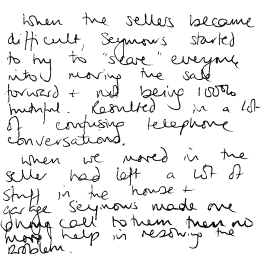 When the sellers became
difficult, Seymours started
to try to "scare" everyone
into moving the sale
forward + not being 100%
truthful. Resulted in a lot
of confusing telephone
conversations.
When we moved in the
seller had left a lot of
stuff in the house +
garage Seymours made one
phone call to them then no
more help in resolving the
problem.